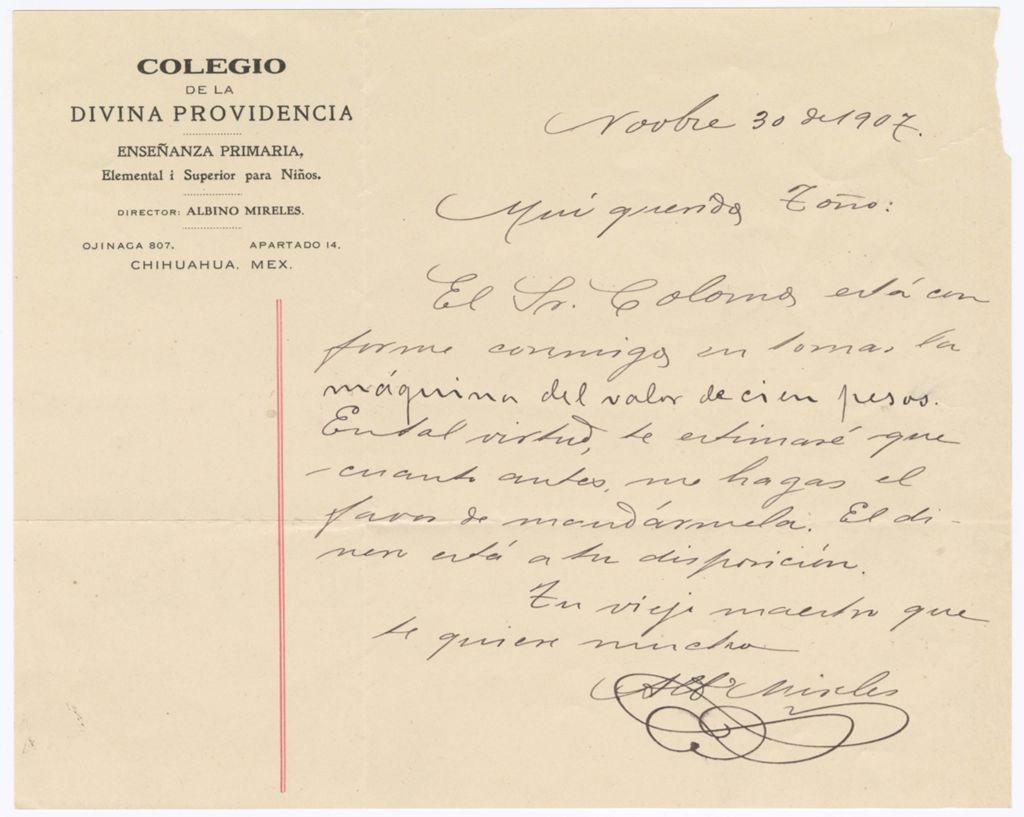 COLEGIO
DE LA
DIVINA PROVIDENCIA
ENSEÑANZA PRIMARIA,
Elemental i Superior para Niños.
DIRECTOR: ALBINO MIRELES.
OJINAGA 807. APARTADO 14.
CHIHUAHUA, MEX.
Novbre 30 de 1907.
Mui querido Toño:
El Sr. Colomo está con
forme conmigo en tomar la
máquina del valor de cien pesos.
En tal virtud, te estimaré que
cuanto antes, me hagas el
favor de mandármela. El di-
nero está a tu disposición.
Tu viejo maestro que
te quiere mucho
Alb° Mireles